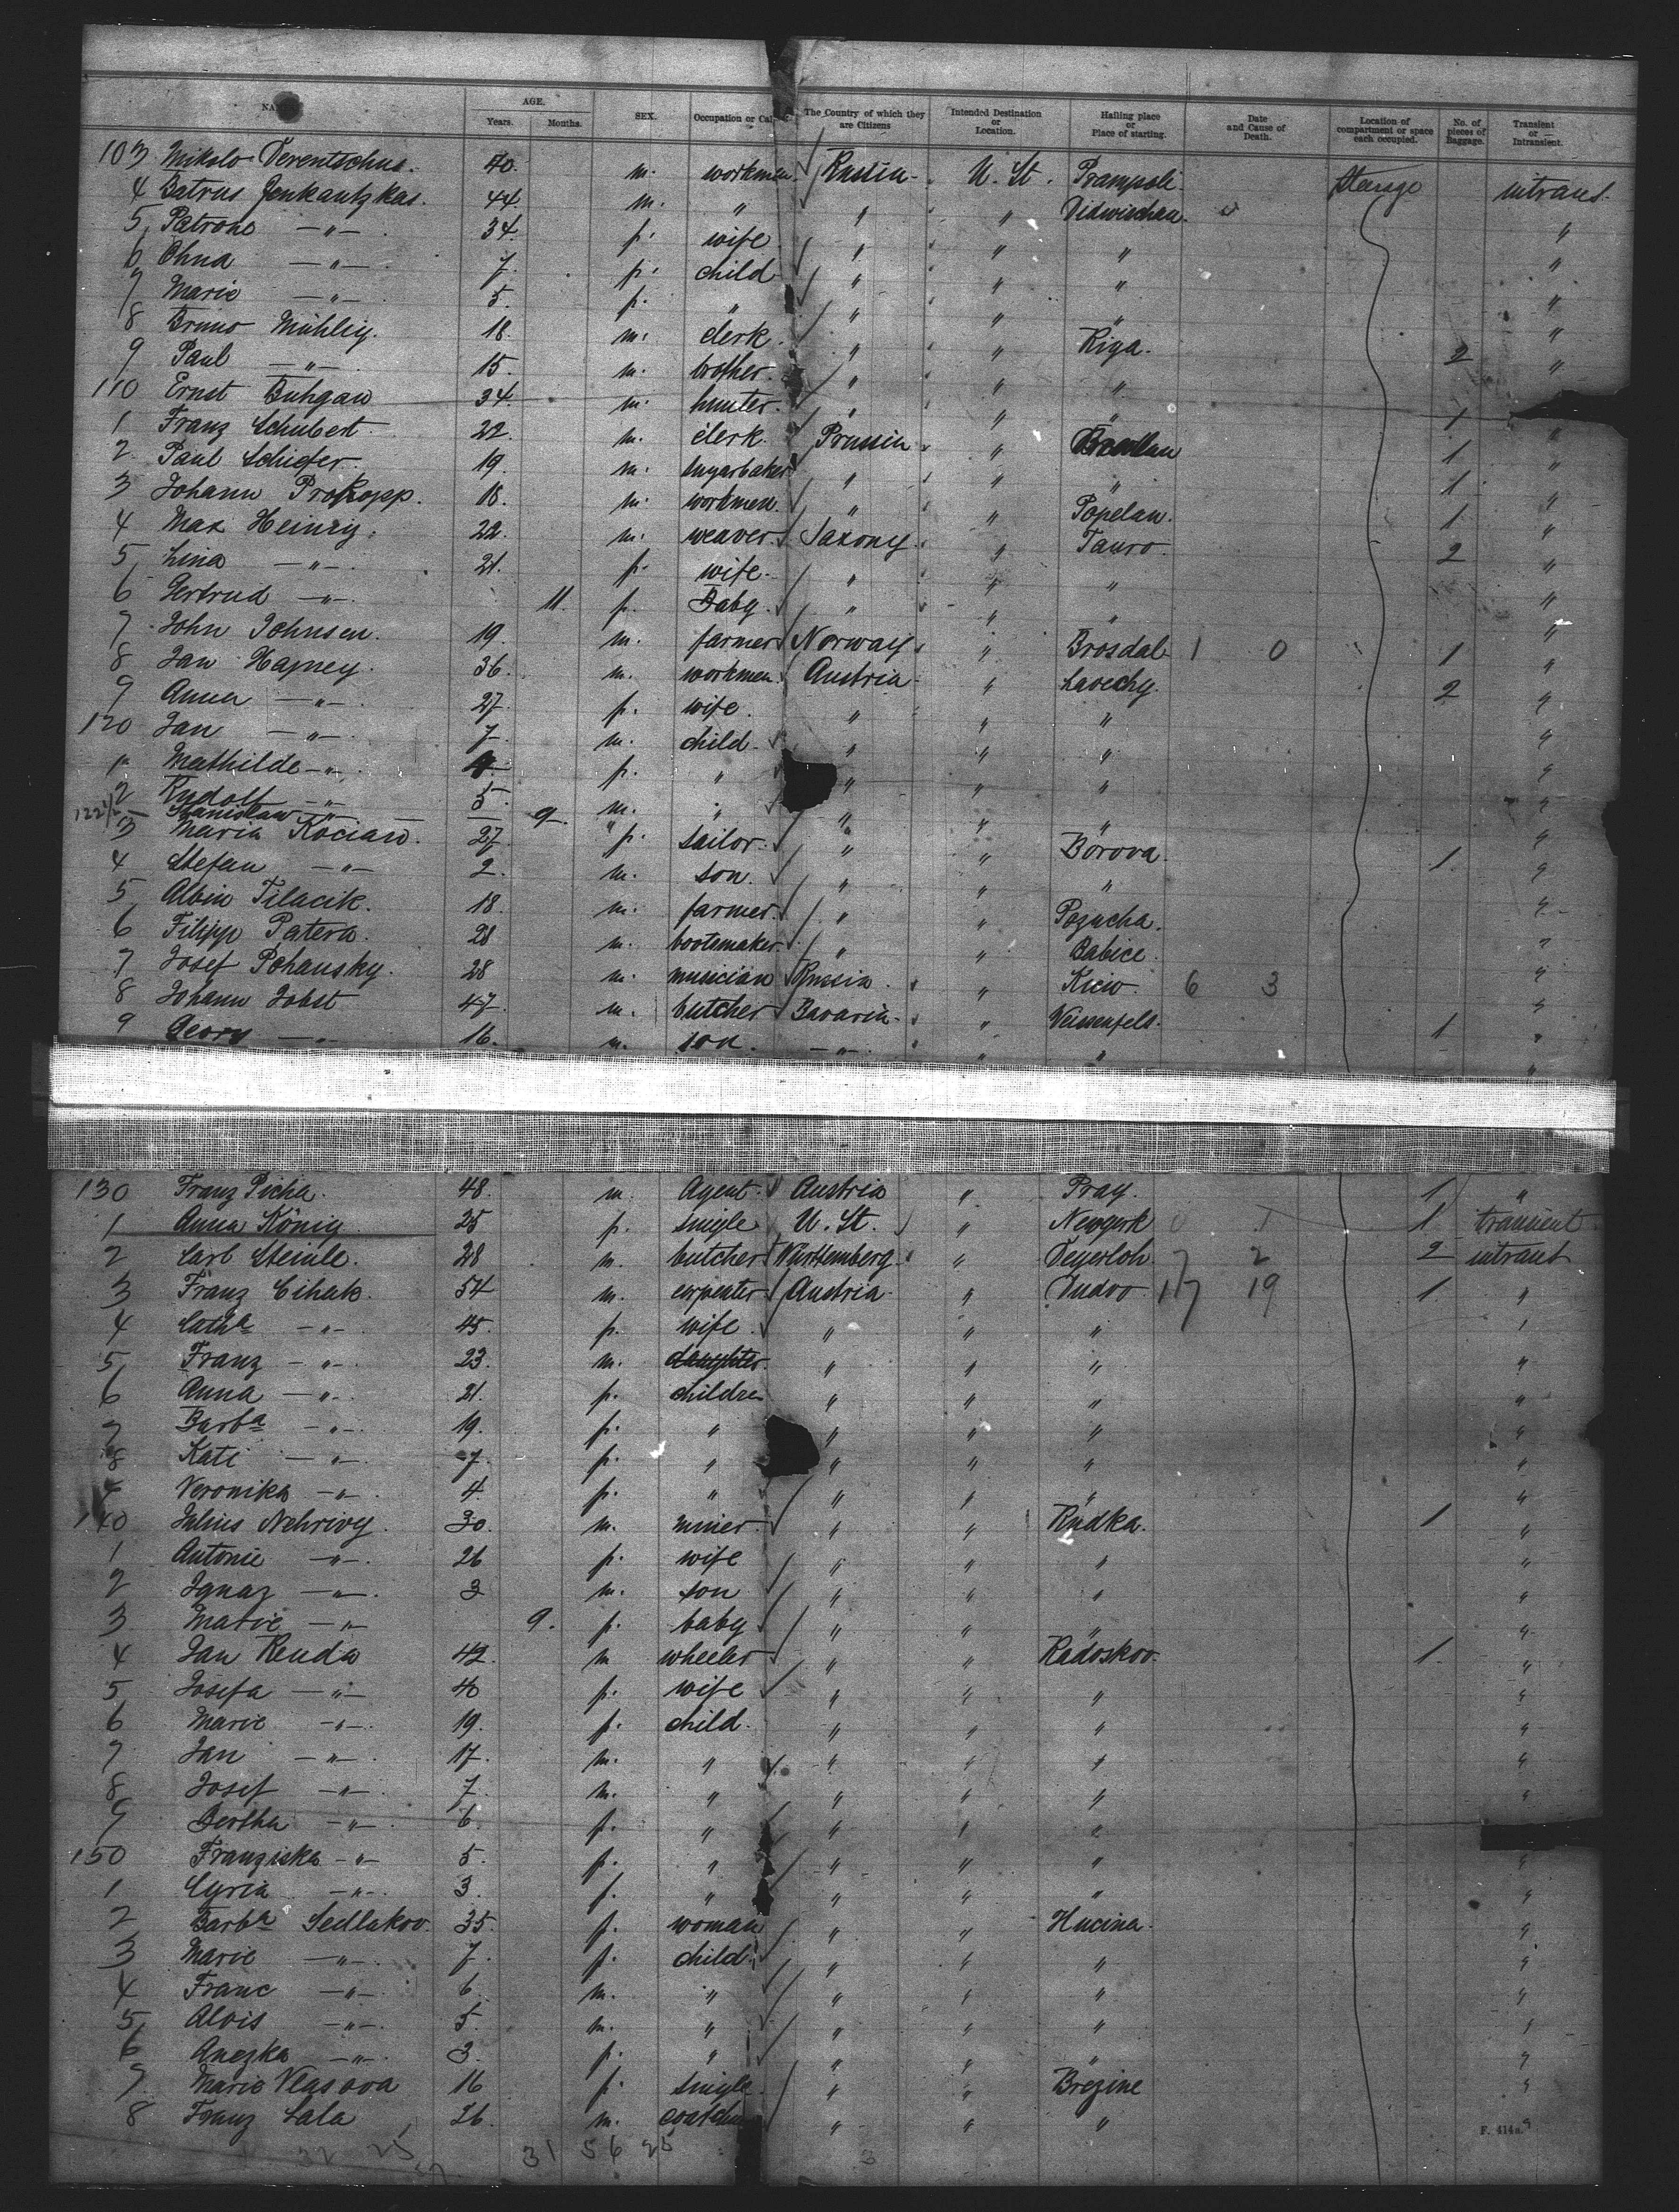 NAMES. AGE. Years. Months. SEX. Occupation or The Country of which they are Citizens Intended Destination or Location. Hailing place or Place of starting. Date and Cause of Death. Location of compartment or space each occupied. No. of pieces of Baggage. Transient or Intransient.
103 Mikolo 40. m. workmen. Russia U. St. Prampoli. intrans.
4 44. m. " " " "
5 Patrone — " — 34. f. wife " " " "
6 Ohna — " — 7. f. child " " " "
7 Marie — " — 5. f. " " " " "
8 Bruno Mühlig. 18. m. clerk. " " Riga. 2 "
9 Paul — " — 15. m. brother. " " " "
110 Ernst Buhgaw 34. m. hunter. " " " 1 "
1 Franz Schubert. 22. m. clerk. Prussia " Breslau 1 "
2 Paul Schiefer. 19. m. sugarbaker " " " 1 "
3 Johann Prokopp. 18. m. workmen. " " Popelau. 1 "
4 Max Heinig. 22. m. weaver. Saxony. " Tauro. 2 "
5 Lina — " — 21. f. wife " " " "
6 Gertrud — " — 11. f. Baby. " " " "
7 John Johnsen. 19. m. farmer Norway " Brosdal 1 0 1 "
8 Jan Hajney. 36. m. workmen. Austria " 2 "
9 Anna — " — 27. f. wife. " " " "
120 Jan — " — 7. m. child " " " "
1 Mathilde — " — f. " " " " "
2 Rudolf — " — 5. m. " " " " "
122½ — Stanislaw — " — 9
3 Maria Kocian. 27. f. sailor. " " Borova. 1. "
4 Stefan — " — 2. m. son. " " " "
5 Albin Tilacik. 18. m. farmer. " " Pozucha. "
6 Filipp Patera. 28 m. bootsmaker " " Babice. "
7 Josef Pohansky. 28 m. musician Russia " 6 3 "
8 Johann Jobst 47. m. butcher Bavaria " Weissenfels. 1 "
9 Georg — " — 16. m. son. — " — " " "
130 Franz Picha. 48. m. Agent. Austria " Prag. 1 "
1 Anna König 25 f. single U. St. " Newyork 0 1 1 transient
2 Carl Steinle. 28 m. butcher Württemberg " 7 2 2 intrant
3 Franz Cihak. 54 m. carpenter Austria " 17 19 1 "
4 Catha — " — 45. f. wife. " " " "
5 Franz — " — 23. m. daughter. " " " "
6 Anna — " — 21. f. children " " " "
7 Barba — " — 19. f. " " " " "
8 Kati — " — 7. f. " " " " "
Veronika — " — 4. f. " " " " "
140 Julius Nehrivy. 30. m. miner. " " Rudka. 1 "
1 Antonie — " — 26 f. wife " " " "
2 Ignaz — " — 3 m. son " " " "
3 Marie — " — 9. f. baby " " " "
4 Jan Renda 42. m wheeler " " Radoskov. 1. "
5 Josefa — " — 40 f. wife " " " "
6 Marie — " — 19. f. child. " " " "
7 Jan — " — 17. m. " " " " "
8 Josef — " — 7. m. " " " " "
9 Bertha — " — 6. f. " " " "
150 Franziska — " — 5. f. " " " " "
1 Cyria — " — 3. f. " " " " "
2 Barba Sedlakov. 35. f. woman " " Hucina. "
3 Marie — " — 7. f. child. " " " "
4 Franc — " — 6. m. " " " " "
5 Alois — " — 5. m. " " " " "
6 Anezka — " — 3. f. " " " " "
7 Marie Vlasava 16 f. single. " " Brezine "
8 Franz Lala 26. m. " " " "
F. 414a.
32 25 31 56 25 3